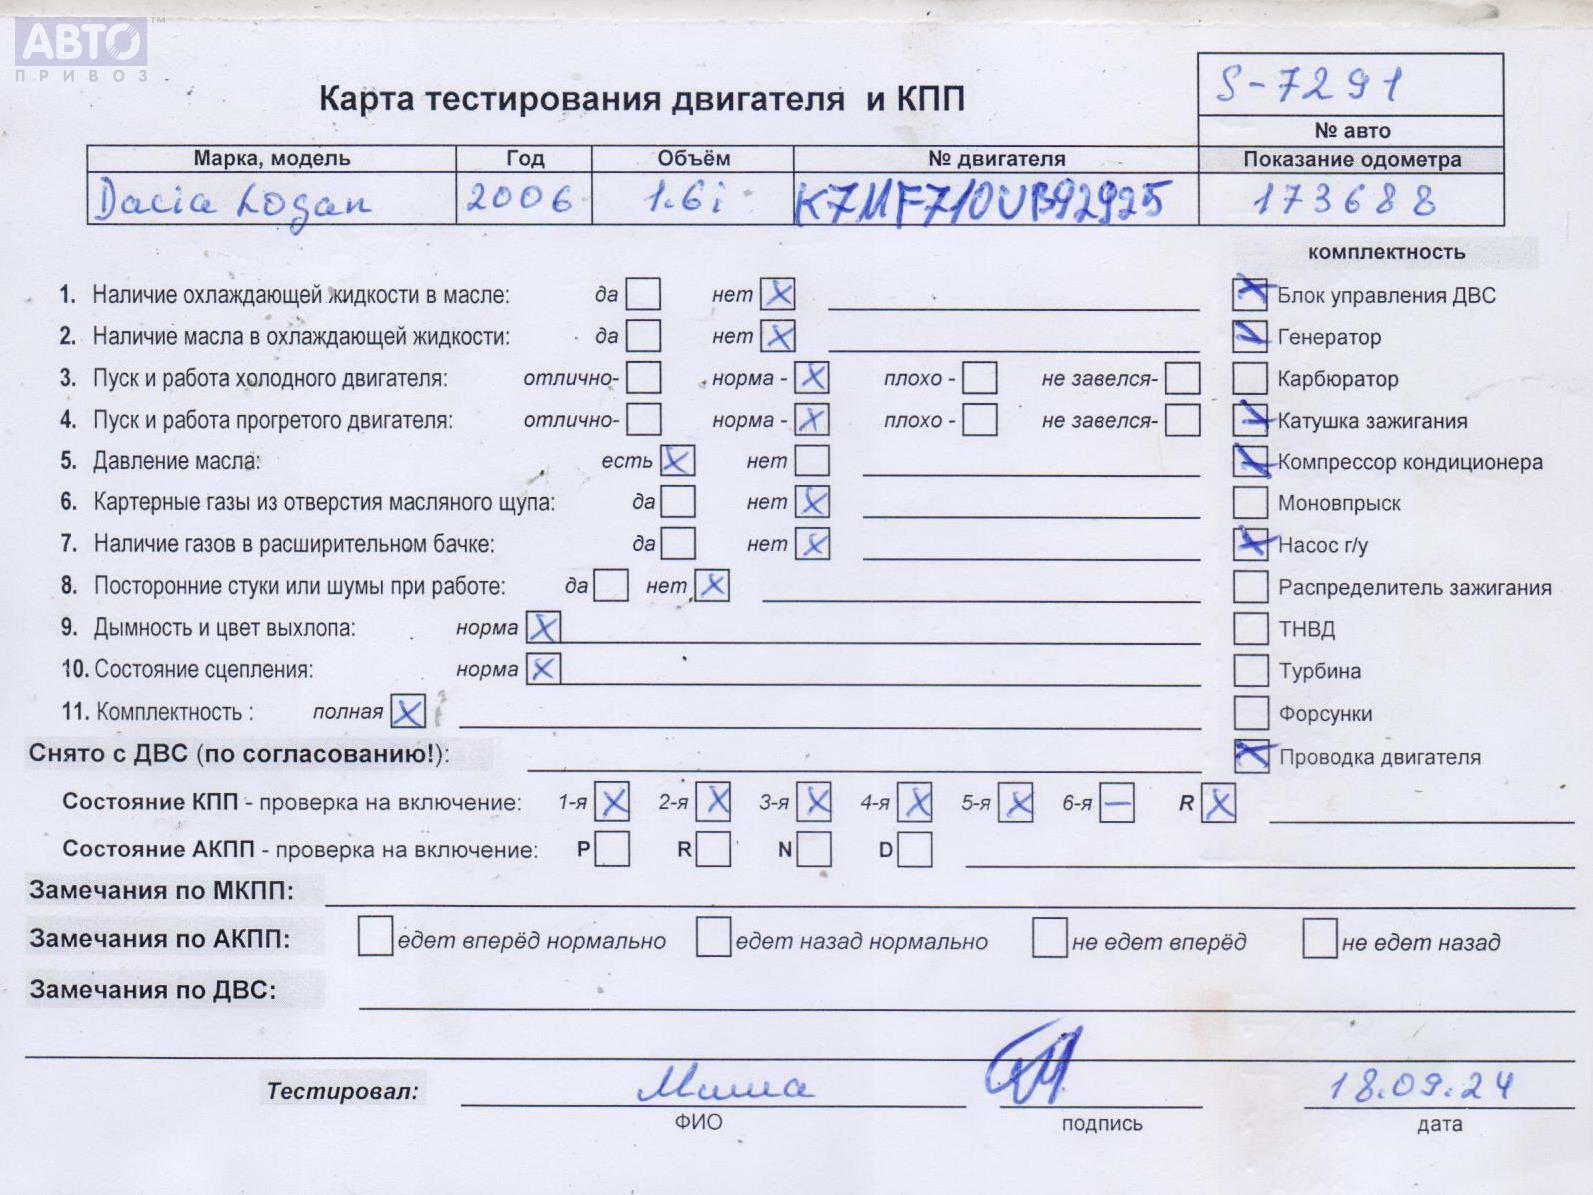 АВТО™
ПРИВОЗ
S-7291
Карта тестирования двигателя и КПП
№ авто
Марка, модель Год Объём № двигателя Показание одометра
Dacia Logan 2006 1.6i K7MF710UB92925 173688
комплектность
1. Наличие охлаждающей жидкости в масле: да нет X
X Блок управления ДВС
2. Наличие масла в охлаждающей жидкости: да нет X
X Генератор
3. Пуск и работа холодного двигателя: отлично- норма - X плохо - не завелся-
Карбюратор
4. Пуск и работа прогретого двигателя: отлично- норма - X плохо - не завелся-
X Катушка зажигания
5. Давление масла: есть X нет
X Компрессор кондиционера
6. Картерные газы из отверстия масляного щупа: да нет X
Моновпрыск
7. Наличие газов в расширительном бачке: да нет X
X Насос г/у
8. Посторонние стуки или шумы при работе: да нет X
Распределитель зажигания
9. Дымность и цвет выхлопа: норма X
ТНВД
10. Состояние сцепления: норма X
Турбина
11. Комплектность : полная X
Форсунки
Снято с ДВС (по согласованию!):
X Проводка двигателя
Состояние КПП - проверка на включение: 1-я X 2-я X 3-я X 4-я X 5-я X 6-я — R X
Состояние АКПП - проверка на включение: P R N D
Замечания по МКПП:
Замечания по АКПП: едет вперёд нормально едет назад нормально не едет вперёд не едет назад
Замечания по ДВС:
Тестировал: Миша 18.09.24
ФИО подпись дата